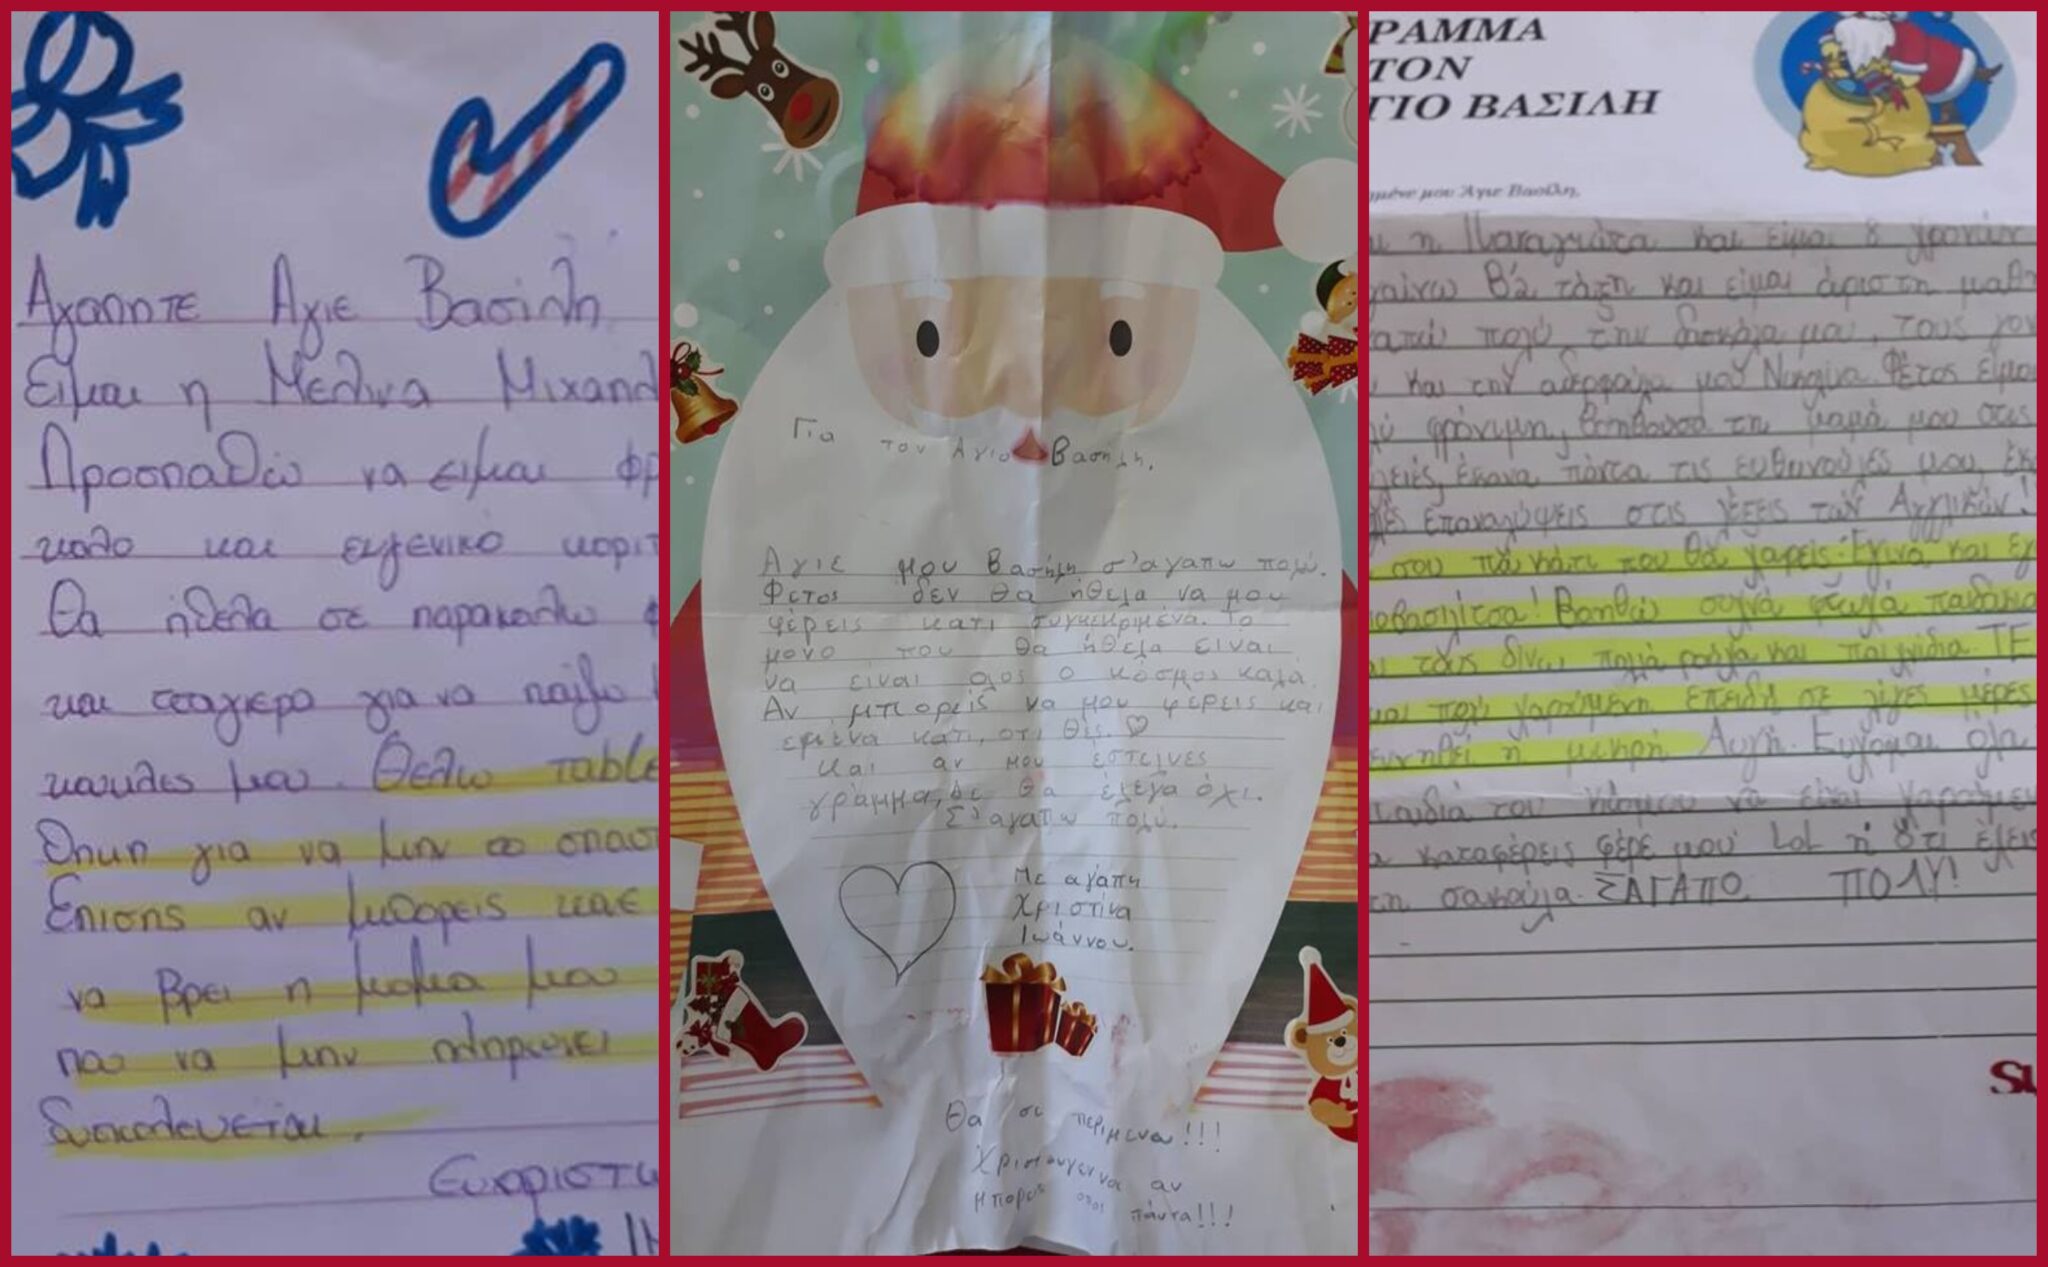 Αγαπητε Αγιε Βασιλη
Ειμαι η Μελινα Μιχαηλ
Προσπαθω να ειμαι φρ
καλο και ευγενικο κοριτ
Θα ήθελα σε παρακαλω φ
και για να παιξω
μου. Θελω table
θηκη για να μην το σπασ
Επισης αν μπορεις κανε
να βρει η μαμα μου
που να μην πληρωνει
δυσκολευεται.
Ευχαριστω
Για τον Αγιο Βασήλη.
Αγιε μου Βασήλη σ'αγαπω πολύ.
Φετος δεν θα ήθελα να μου
φέρεις κατι συγκεκριμένα. Το
μονο που θα ήθελα ειναι
να είναι ολος ο κόσμος καλά.
Αν μπορείς να μου φερεις και
εμένα κατι, οτι θες.
και αν μου έστελνες
γράμμα, δε θα έλεγα όχι.
Σ'αγαπω πολύ.
Με αγάπη
Χριστίνα
Ιωάννου.
Θα σε περιμενω!!!
Χριστουγεννα αν
μπορεις πάντα!!!
ΡΑΜΜΑ
ΤΟΝ
ΓΙΟ ΒΑΣΙΛΗ
ημένε μου Άγιε Βασίλη,
ι η Παναγιώτα και είμαι 8 χρονών
γαίνω Β'α τάξη και είμαι άριστη μαθ
απώ πολύ την δασκάλα μου, τους γον
υ και την αδερφούλα μου Φέτος είμαι
λύ φρόνιμη, βοηθούσα τη μαμά μου στις
λειές, έκανα πάντα τις μου, έκ
επαναλήψεις στις λέξεις των Αγγλικών!
σου πω κάτι που θα χαρείς. Έγινα και εγ
ιοβασιλίτσα! Βοηθώ συχνά φτωχά παιδάκια
ι τους δίνω πολλά ρούχα και παιχνίδια. ΤΕ
μαι πολύ χαρούμενη επειδή σε λίγες μέρες
εννηθεί η μικρή Αυγή. Εύχομαι όλα
παιδιά του κόσμου να είναι χαρούμεν
α καταφέρεις φέρε μου Lol ή ό'τι έχεις
τη σακούλα. ΣΑΓΑΠΩ ΠΟΛΥ!